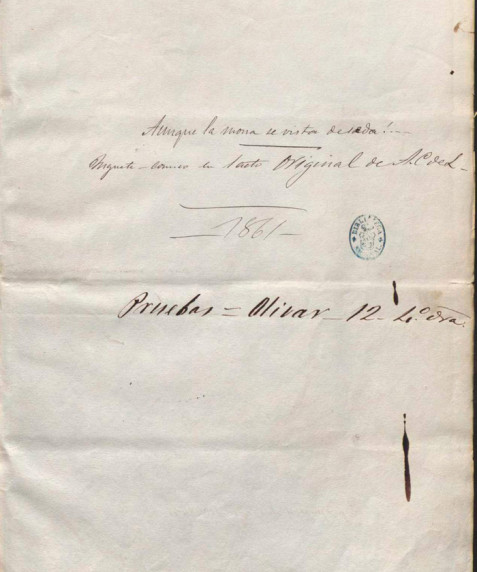 Aunque la mona se vista de seda!...
Juguete-comico en 1 acto Original de A. C. de L-
1861-
BIBLIOTECA
Pruebas = Olivar - 12 - 4.º dra.